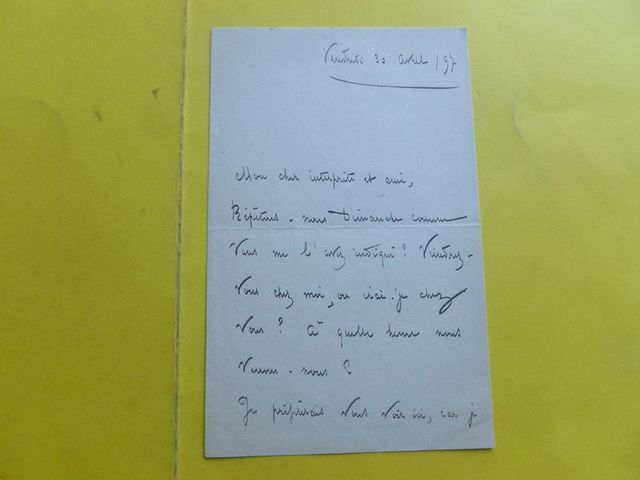 Vendredi 30 avril /97
Mon cher interprète et ami,
Répétons-nous Dimanche comme
Vous me l'avez indiqué ? Viendrez-
Vous chez moi, ou irai-je chez
Vous ? à quelle heure nous
Verrons-nous ?
Je préférerais Vous Voir ici, car je